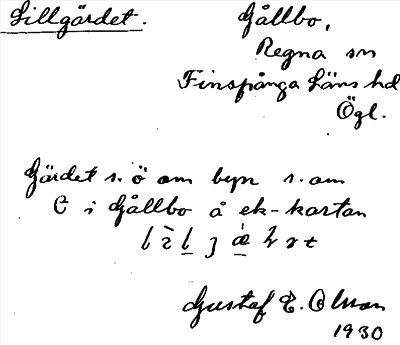 Lillgärdet.
Gållbo,
Regna sn
Finspånga läns hd
Ögl.
Gärdet s. ö om byn s. om
C i Gållbo å ek-kartan
Gustaf E. Olsson
1930